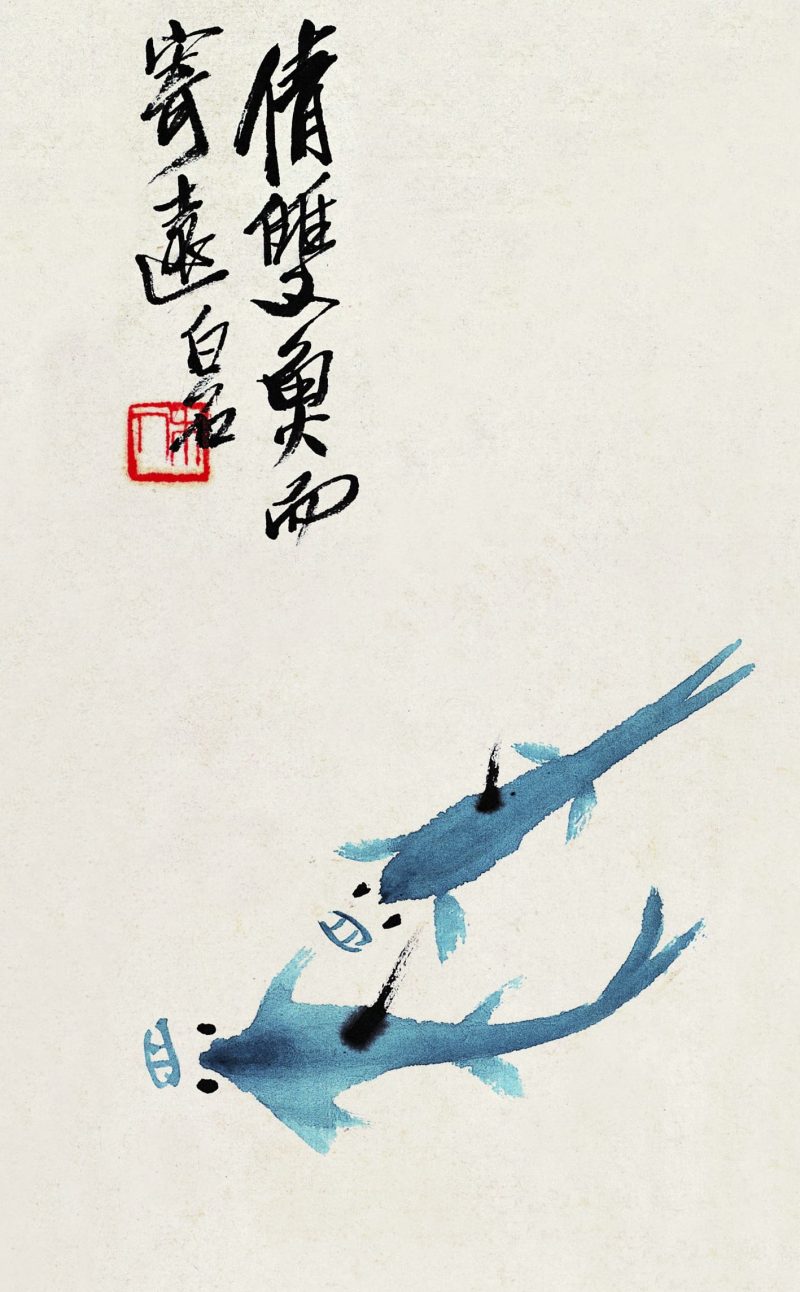 倩雙魚而
寄遠白石